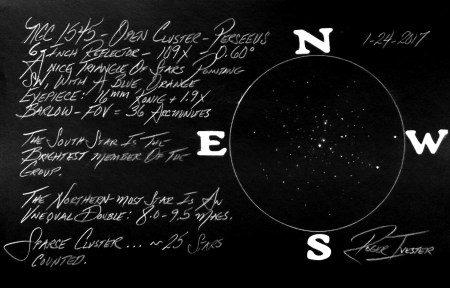 NGC 1545 - Open Cluster - Perseus
6-Inch Reflector - 119X - 0.60°
A nice Triangle Of Stars Pointing
SW, With A Blue Orange
Eyepiece: 16mm König + 1.9X
Barlow - FOV = 36 Arcminutes
The South Star Is The
Brightest Member Of The
Group.
The Northern-most Star Is An
Unequal Double: 8.0 - 9.5 Mags.
Sparce Cluster... ~ 25 Stars
Counted.
N
1-24-2017
E
W
S
Roger Ivester